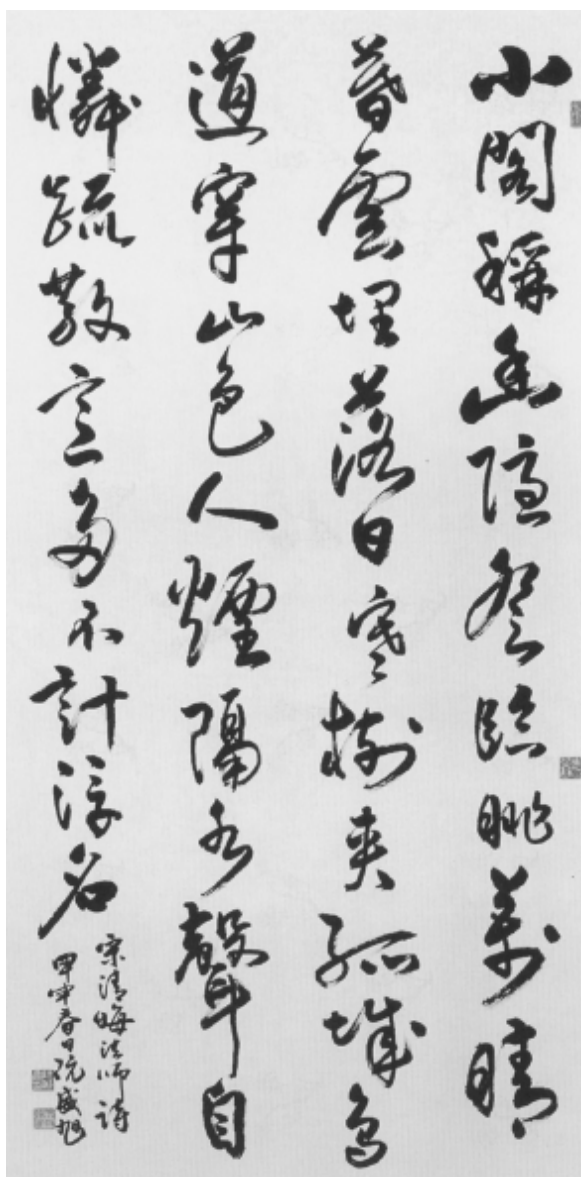 小閣稱幽隱登臨眺萬晴
暮雲埋落日寒樹夾孤城鳥
道穿山色人煙隔水聲自
憐疏散意多不計浮名
宋清晦法師詩
甲申春日阮威旭